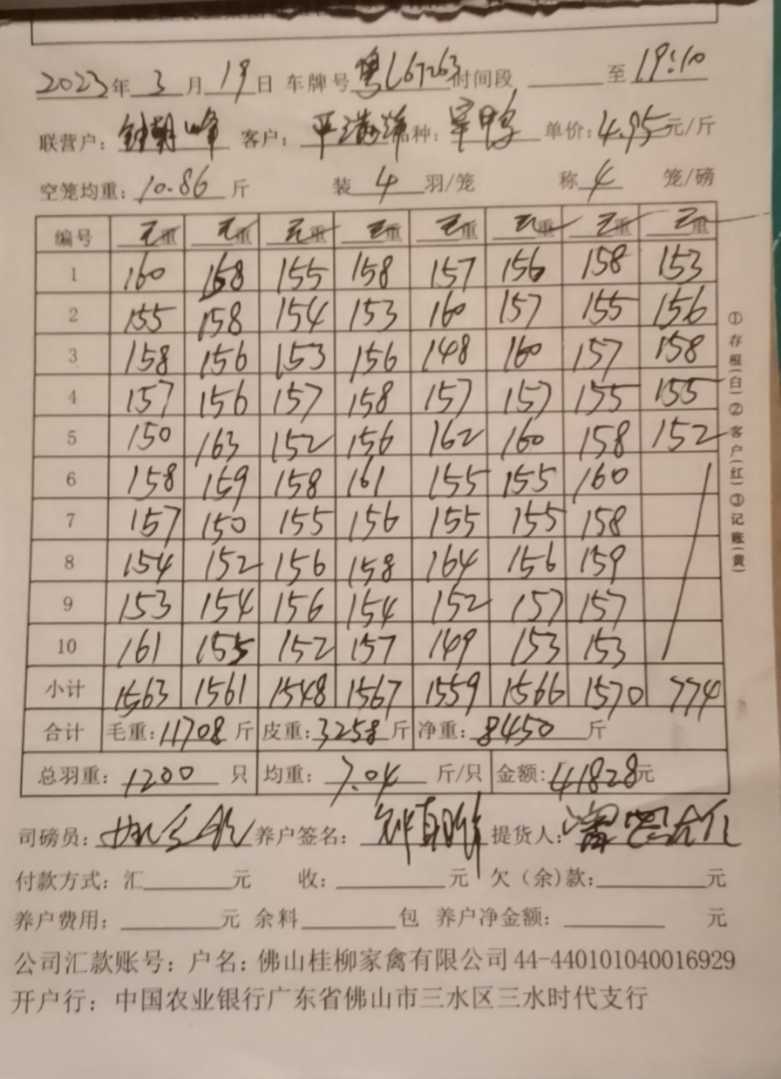 2023年3月19日 车牌号 粤L67263 时间段 至 19:10
联营户: 钟朝峰 客户: 品种: 单价: 4.95元/斤
空笼均重: 10.86 斤 装 4 羽/笼 称 4 笼/磅
编号 毛重 毛重 毛重 毛重 毛重 毛重 毛重 毛重
1 160 158 155 158 157 156 158 153
2 155 158 154 153 160 157 155 156
3 158 156 153 156 148 160 157 158
4 157 156 157 158 157 157 155 155
5 150 163 152 156 162 160 158 152
6 158 159 158 161 155 155 160
7 157 150 155 156 155 155 158
8 154 152 156 158 164 156 159
9 153 154 156 154 152 157 157
10 161 155 152 157 149 153 153
小计 1563 1561 1548 1567 1559 1566 1570 774
合计 毛重: 11708 斤 皮重: 3258 斤 净重: 8450 斤
总羽重: 1200 只 均重: 7.04 斤/只 金额: 41828元
司磅员: 养户签名: 钟朝峰 提货人:
付款方式: 汇 元 收: 元 欠(余)款: 元
养户费用: 元 余料 包 养户净金额: 元
公司汇款账号: 户名: 佛山桂柳家禽有限公司 44-440101040016929
开户行: 中国农业银行广东省佛山市三水区三水时代支行
①存根(白)②客户(红)③记账(黄)